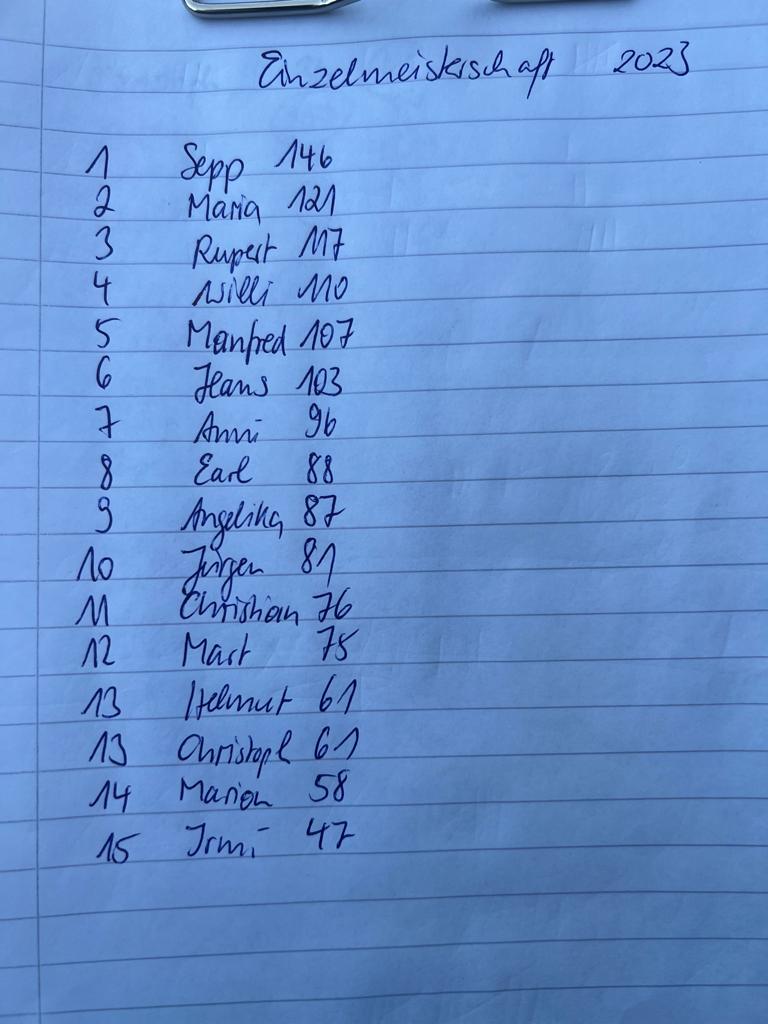 Einzelmeisterschaft 2023
1 Sepp 146
2 Maria 121
3 Rupert 117
4 Willi 110
5 Manfred 107
6 Hans 103
7 Anni 96
8 Earl 88
9 Angelika 87
10 Jürgen 81
11 Christian 76
12 Mart 75
13 Helmut 61
13 Christoph 61
14 Marion 58
15 Irmi 47